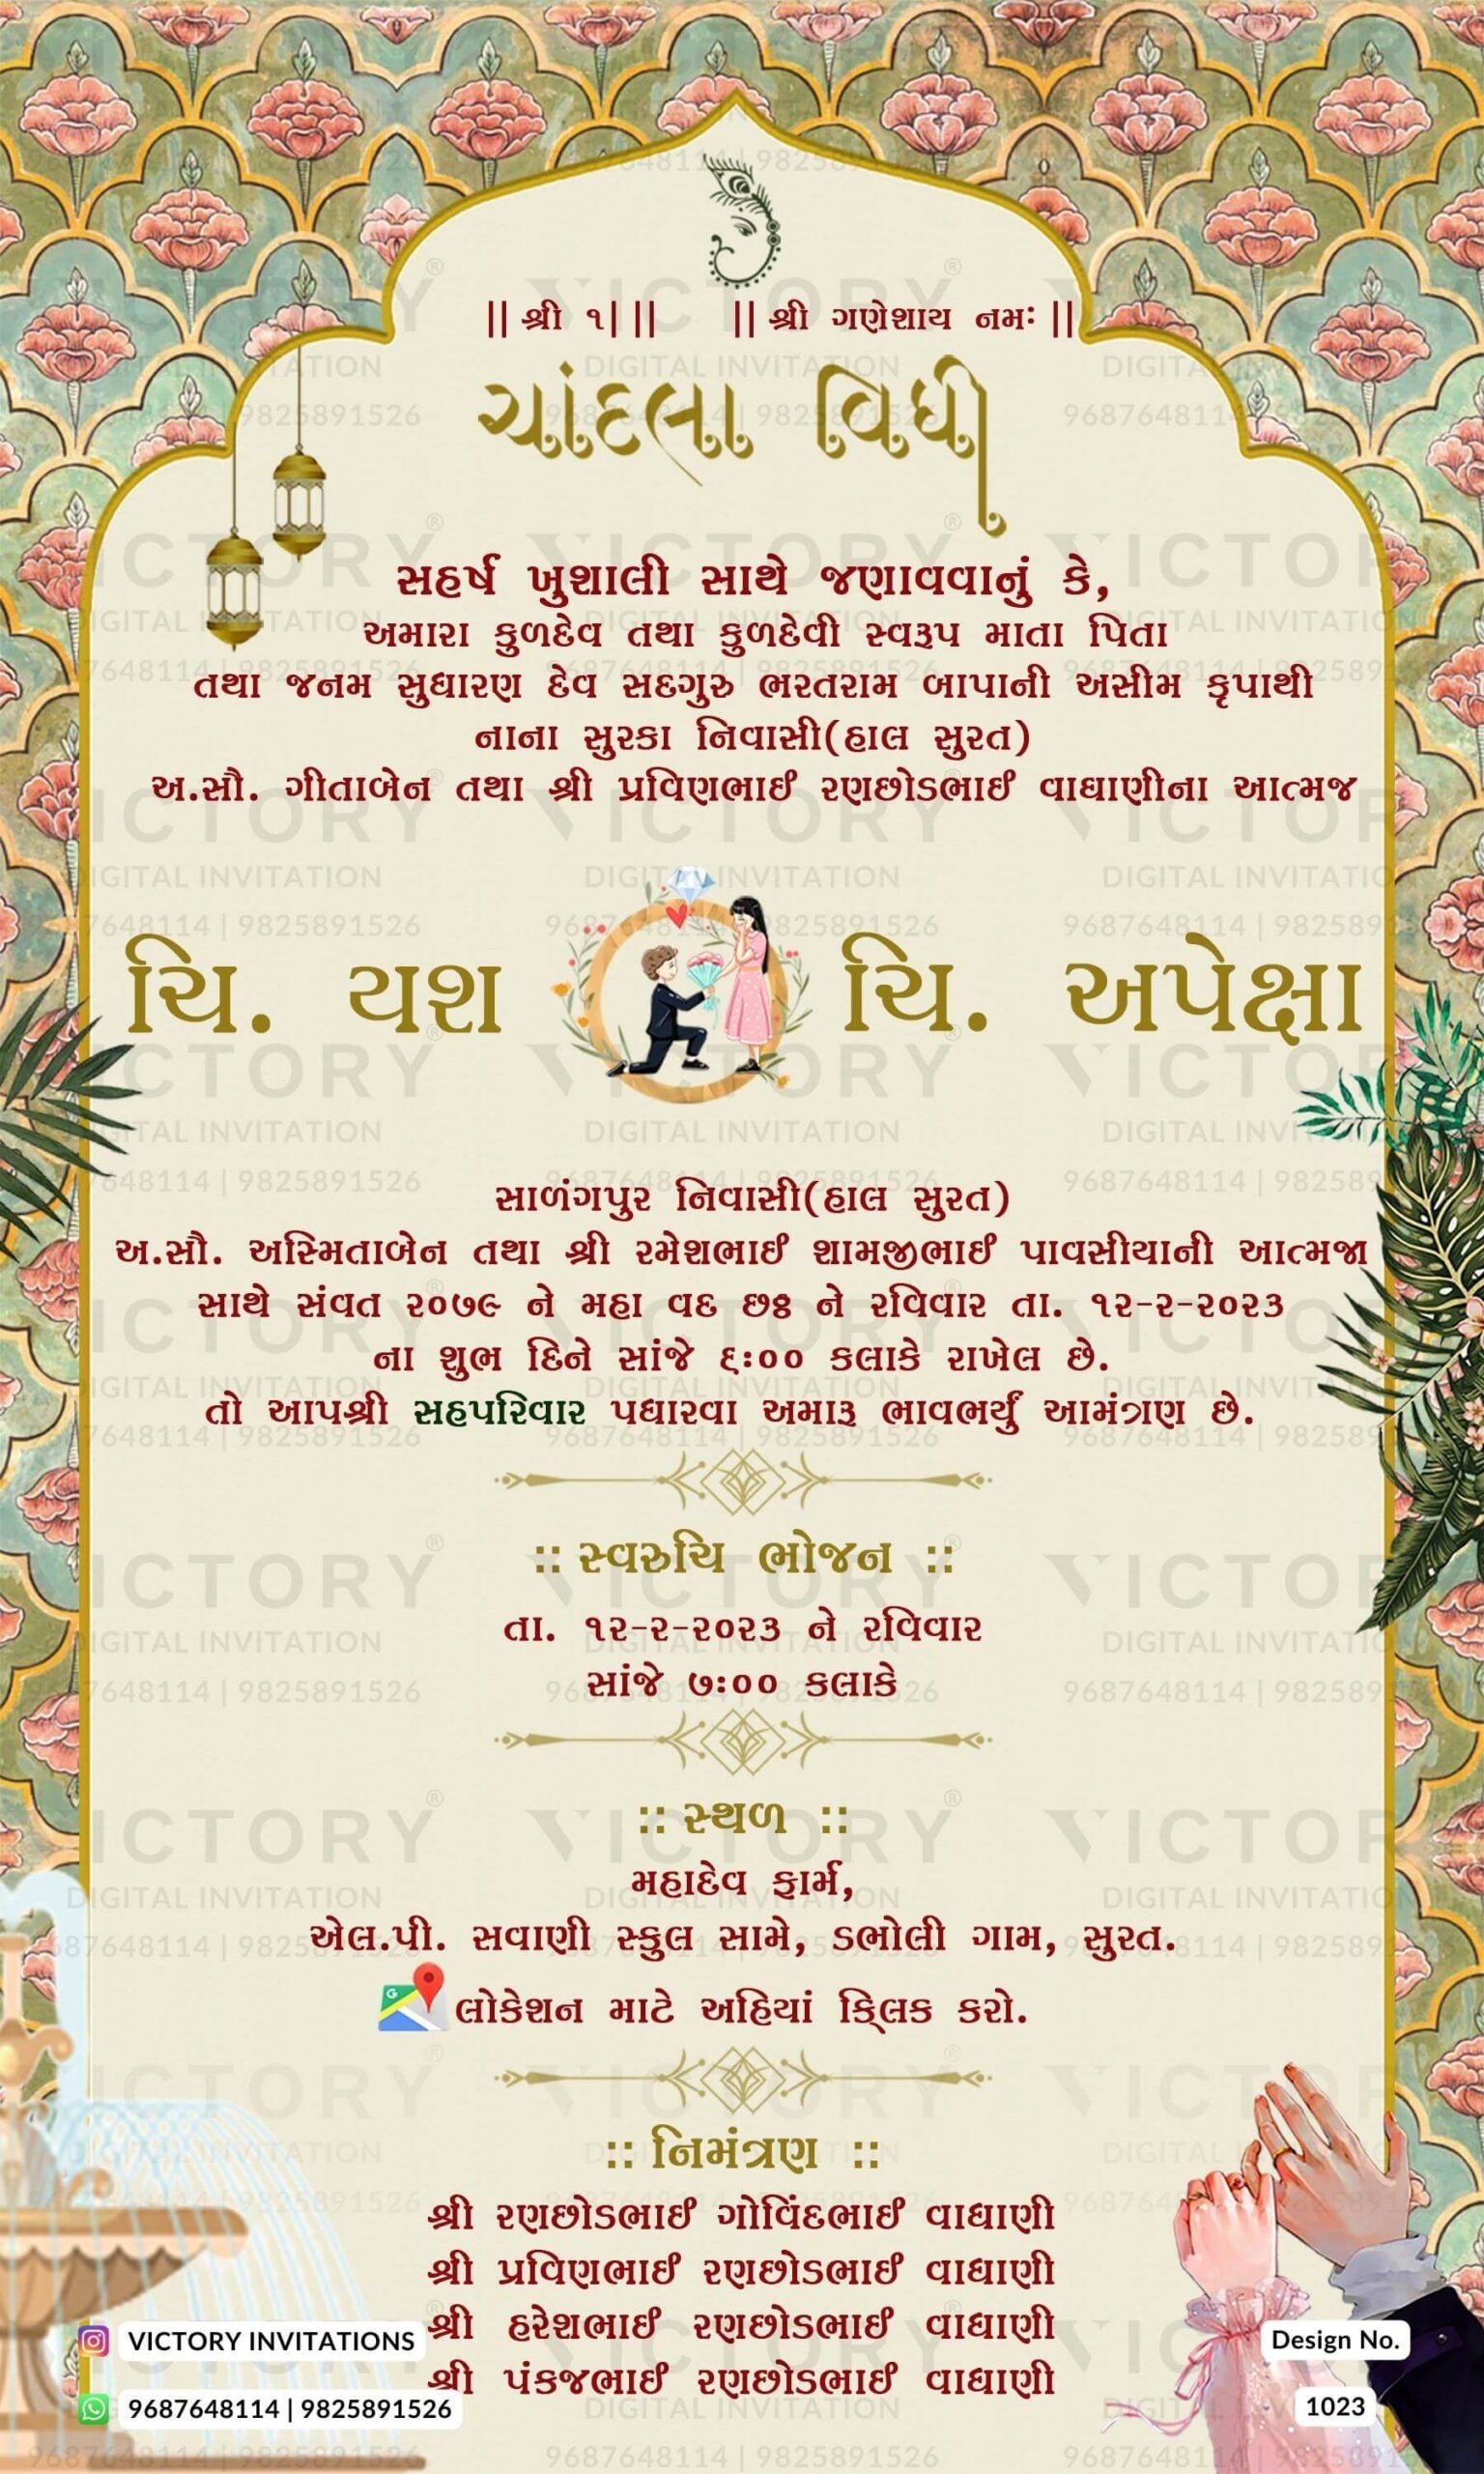 || શ્રી ૧| || || શ્રી ગણેશાય નમઃ ||
ચાંદલા વિધી
સહર્ષ ખુશાલી સાથે જણાવવાનું કે,
અમારા કુળદેવ તથા કુળદેવી સ્વરૂપ માતા પિતા
તથા જનમ સુધારણ દેવ સદગુરુ ભરતરામ બાપાની અસીમ કૃપાથી
નાના સુરકા નિવાસી(હાલ સુરત)
અ.સૌ. ગીતાબેન તથા શ્રી પ્રવિણભાઈ રણછોડભાઈ વાઘાણીના આત્મજ
ચિ. યશ ચિ. અપેક્ષા
સાળંગપુર નિવાસી(હાલ સુરત)
અ.સૌ. અસ્મિતાબેન તથા શ્રી રમેશભાઈ શામજીભાઈ પાવસીયાની આત્મજા
સાથે સંવત ૨૦૭૯ ને મહા વદ છઠ્ઠ ને રવિવાર તા. ૧૨-૨-૨૦૨૩
ના શુભ દિને સાંજે ૬:૦૦ કલાકે રાખેલ છે.
તો આપશ્રી સહપરિવાર પધારવા અમારૂ ભાવભર્યું આમંત્રણ છે.
:: સ્વરુચિ ભોજન ::
તા. ૧૨-૨-૨૦૨૩ ને રવિવાર
સાંજે ૭:૦૦ કલાકે
:: સ્થળ ::
મહાદેવ ફાર્મ,
એલ.પી. સવાણી સ્કુલ સામે, ડભોલી ગામ, સુરત.
લોકેશન માટે અહિયાં ક્લિક કરો.
:: નિમંત્રણ ::
શ્રી રણછોડભાઈ ગોવિંદભાઈ વાઘાણી
શ્રી પ્રવિણભાઈ રણછોડભાઈ વાઘાણી
શ્રી હરેશભાઈ રણછોડભાઈ વાઘાણી
શ્રી પંકજભાઈ રણછોડભાઈ વાઘાણી
VICTORY INVITATIONS
9687648114 | 9825891526
Design No.
1023
VICTORY
DIGITAL INVITATION
9687648114 | 9825891526